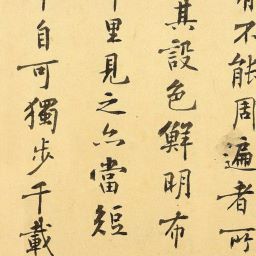 不能周遍者所
其設色鮮明布
里見之亦當短
自可獨步千載